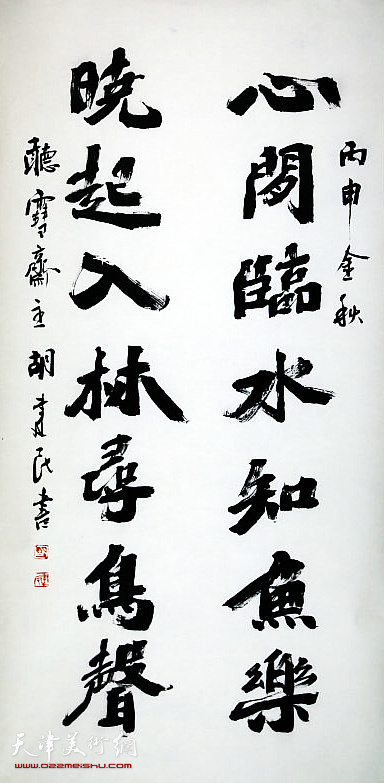 丙申金秋
心閒臨水知魚樂
曉起入林尋鳥聲
聽雪齋主胡書民書
天津美術網
www.022meishu.com